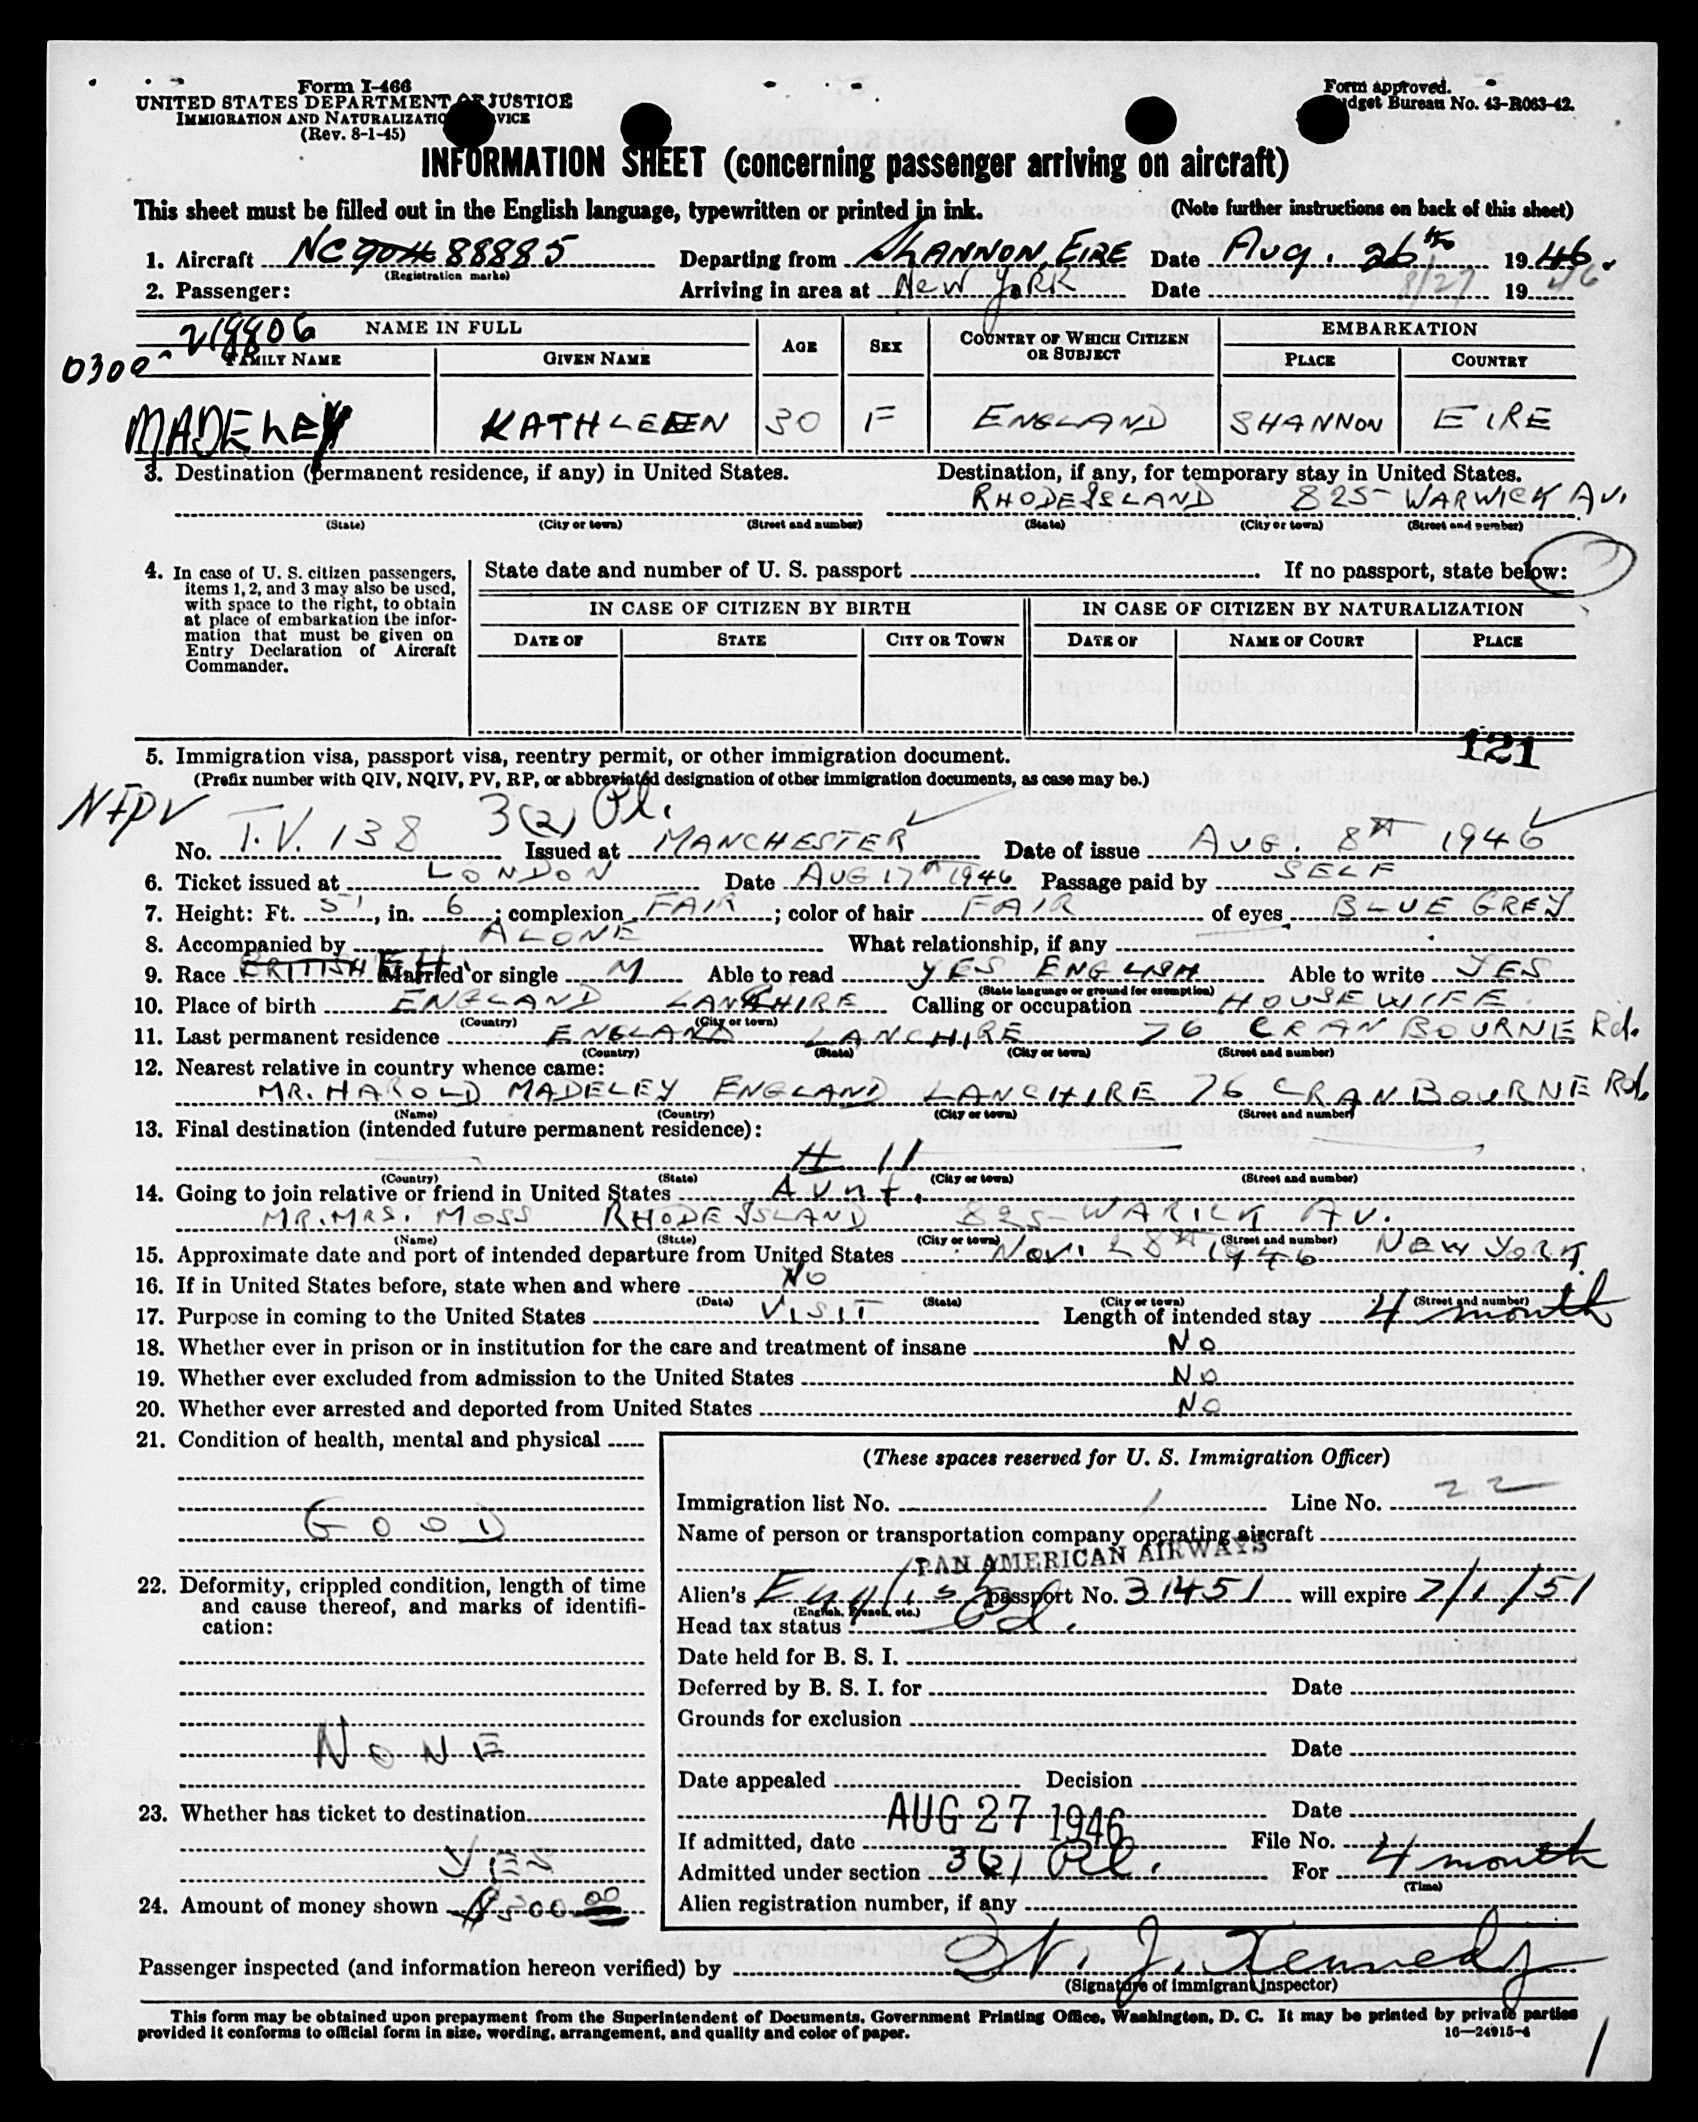 Form I-466
UNITED STATES DEPARTMENT OF JUSTICE
IMMIGRATION AND NATURALIZATION SERVICE
(Rev. 8-1-45)
Form approved.
Budget Bureau No. 43-R063-42.
INFORMATION SHEET (concerning passenger arriving on aircraft)
This sheet must be filled out in the English language, typewritten or printed in ink. (Note further instructions on back of this sheet)
1. Aircraft NC 88885 Departing from SHANNON, EIRE Date Aug. 26th 1946.
(Registration marks)
2. Passenger: Arriving in area at New York Date 8/27 1946
0300 NAME IN FULL AGE SEX COUNTRY OF WHICH CITIZEN OR SUBJECT EMBARKATION
FAMILY NAME GIVEN NAME PLACE COUNTRY
MADELEY KATHLEEN 30 F ENGLAND SHANNON EIRE
3. Destination (permanent residence, if any) in United States. Destination, if any, for temporary stay in United States.
RHODE ISLAND 825 WARWICK AV.
(State) (City or town) (Street and number) (State) (City or town) (Street and number)
4. In case of U. S. citizen passengers, items 1, 2, and 3 may also be used, with space to the right, to obtain at place of embarkation the information that must be given on Entry Declaration of Aircraft Commander.
State date and number of U. S. passport If no passport, state below:
IN CASE OF CITIZEN BY BIRTH IN CASE OF CITIZEN BY NATURALIZATION
DATE OF STATE CITY OR TOWN DATE OF NAME OF COURT PLACE
121
5. Immigration visa, passport visa, reentry permit, or other immigration document.
(Prefix number with QIV, NQIV, PV, RP, or abbreviated designation of other immigration documents, as case may be.)
NIPV 3(2) Pl.
No. T.V. 138 Issued at MANCHESTER Date of issue AUG. 8TH 1946
6. Ticket issued at LONDON Date AUG 17TH 1946 Passage paid by SELF
7. Height: Ft. 5', in. 6; complexion FAIR; color of hair FAIR of eyes BLUE GREY
8. Accompanied by ALONE What relationship, if any
9. Race BRITISH EH. Married or single M Able to read YES ENGLISH Able to write YES
(State language or ground for exemption)
10. Place of birth ENGLAND LANCHIRE Calling or occupation HOUSEWIFE
(Country) (City or town)
11. Last permanent residence ENGLAND LANCHIRE 76 CRANBOURNE Rd.
(Country) (State) (City or town) (Street and number)
12. Nearest relative in country whence came:
MR. HAROLD MADELEY ENGLAND LANCHIRE 76 CRANBOURNE Rd.
(Name) (Country) (City or town) (Street and number)
13. Final destination (intended future permanent residence):
# 11
(Country) (State) (City or town) (Street and number)
14. Going to join relative or friend in United States Aunt.
MR. MRS. MOSS RHODE ISLAND 825 WARICK AV.
(Name) (State) (City or town) (Street and number)
15. Approximate date and port of intended departure from United States Nov. 28TH 1946 NEW YORK.
16. If in United States before, state when and where NO
(Date) (State) (City or town) (Street and number)
17. Purpose in coming to the United States VISIT Length of intended stay 4 month
18. Whether ever in prison or in institution for the care and treatment of insane NO
19. Whether ever excluded from admission to the United States NO
20. Whether ever arrested and deported from United States NO
21. Condition of health, mental and physical
GOOD
22. Deformity, crippled condition, length of time and cause thereof, and marks of identification:
NONE
23. Whether has ticket to destination
YES
24. Amount of money shown $500.00
(These spaces reserved for U. S. Immigration Officer)
Immigration list No. 1 Line No. 22
Name of person or transportation company operating aircraft
PAN AMERICAN AIRWAYS
Alien's English passport No. 31451 will expire 2/1/51
(English, French, etc.)
Head tax status Pd.
Date held for B. S. I.
Deferred by B. S. I. for Date
Grounds for exclusion
Date
Date appealed Decision
Date
If admitted, date AUG 27 1946 File No.
Admitted under section 3(2) Pl. For 4 month
(Time)
Alien registration number, if any
Passenger inspected (and information hereon verified) by J. Kennedy
(Signature of immigrant inspector)
This form may be obtained upon prepayment from the Superintendent of Documents, Government Printing Office, Washington, D. C. It may be printed by private parties
provided it conforms to official form in size, wording, arrangement, and quality and color of paper. 16—24915-4
1